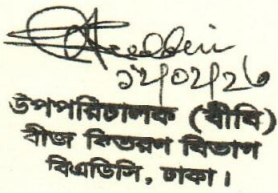 ১৮/০২/২৬
উপপরিচালক (বীবি)
বীজ বিতরণ বিভাগ
বিএডিসি, ঢাকা।